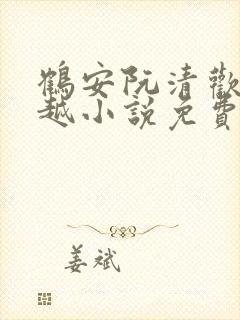 鶴安阮清歡
越小說免費
姜斌